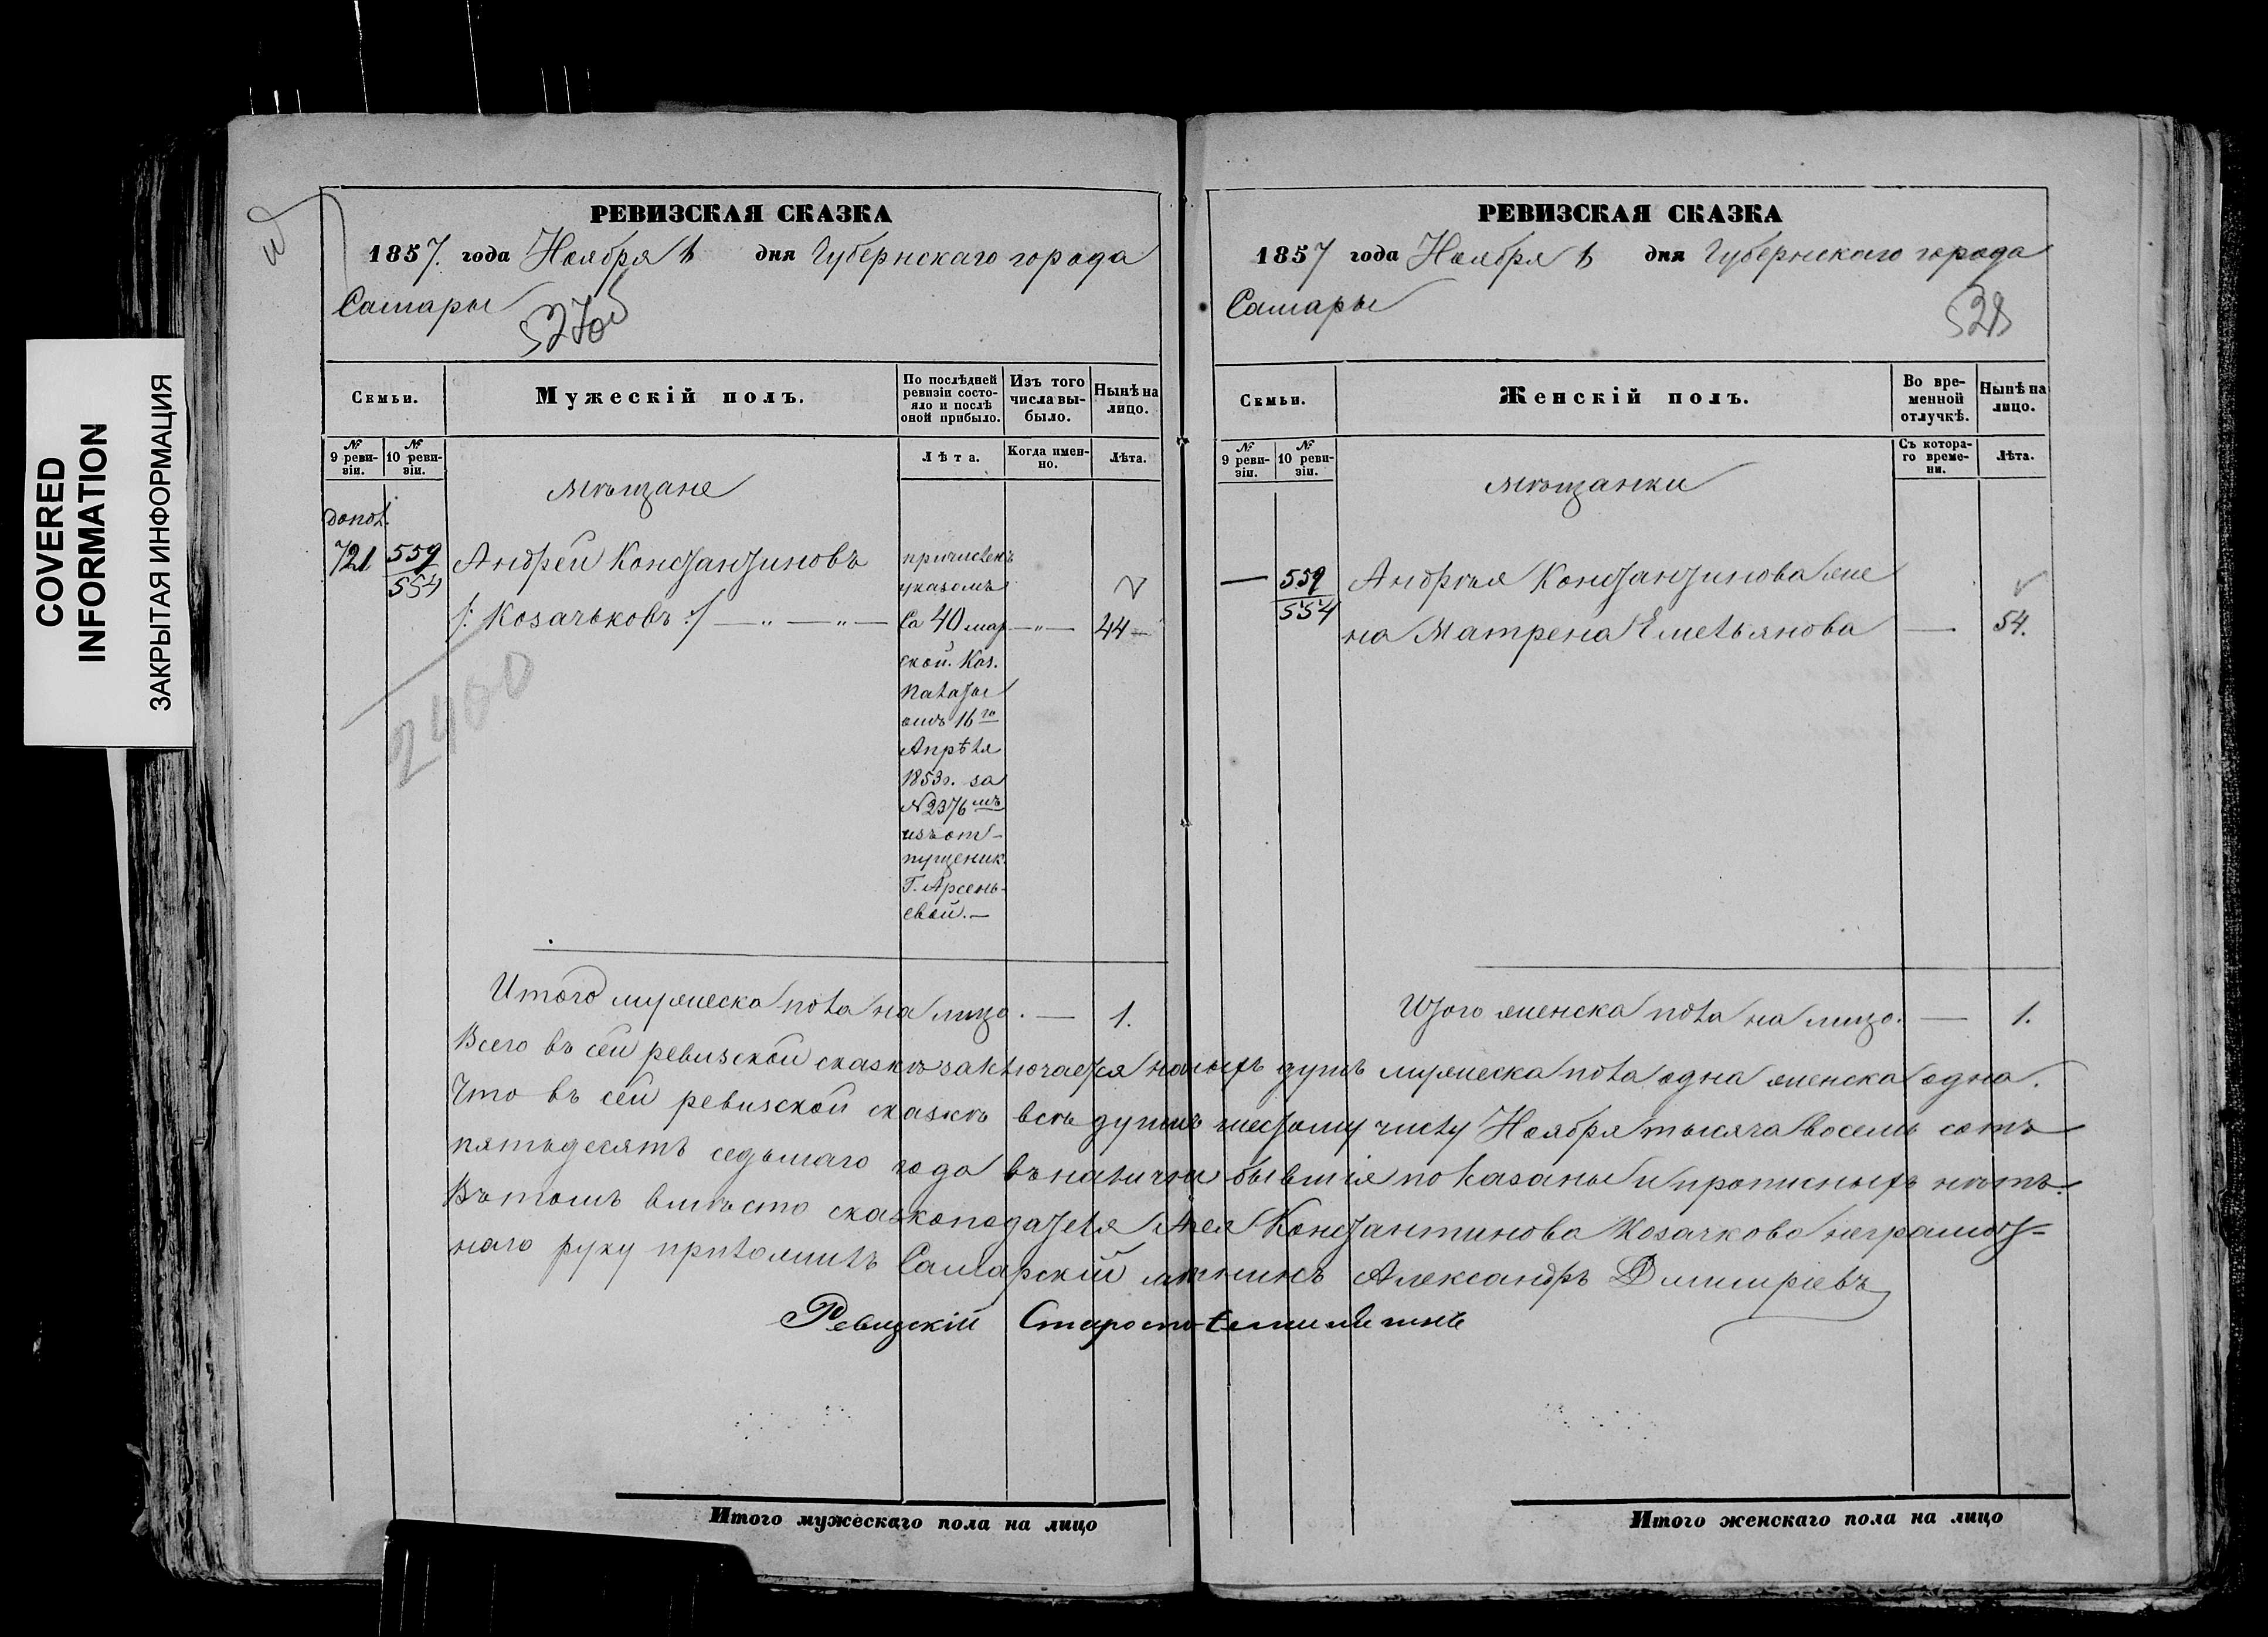 COVERED
INFORMATION
ЗАКРЫТАЯ ИНФОРМАЦИЯ
РЕВИЗСКАЯ СКАЗКА
1857. года Ноября 1 дня Губернскаго города
Самары
Семьи.
Мужескій полъ.
По послѣдней ревизіи состояло и послѣ оной прибыло.
Изъ того числа выбыло.
Нынѣ на лицо.
№ 9 ревизіи.
№ 10 ревизіи.
Лѣта.
Когда именно.
Лѣта.
мѣщане
допол.
721 559 Андрей Константиновъ
554
/: Козачьковъ :/ — „ — „ — 40 — „ — 44 —
причисленъ
указомъ
Самар
ской. Каз.
Палаты
отъ 16го
Апрѣля
1853г. за
№ 2376мъ
изъ от-
пущеник.
Г. Арсень-
евой. —
2400
Итого мужеска пола на лицо. — 1.
РЕВИЗСКАЯ СКАЗКА
1857 года Ноября 1 дня Губернскаго города
Самары
528
Семьи.
Женскій полъ.
Во временной отлучкѣ.
Нынѣ на лицо.
№ 9 ревизіи.
№ 10 ревизіи.
Съ котораго времени.
Лѣта.
мѣщанки
— 559 Андрѣя Константинова же
554 на Матрена Емельянова — 54.
Итого женска пола на лицо. — 1.
Всего въ сей ревизской сказкѣ заключается наличныхъ душъ мужеска пола одна женска одна.
Что въ сей ревизской сказкѣ всѣ души числу Ноября тысяча восемь сотъ
пятьдесятъ седьмаго года въ наличіи бывшія показаны и прописныхъ нѣтъ.
Въ томъ вмѣсто сказкоподателя Константинова Козачкова неграмот-
наго руку приложилъ Самарскій мѣщнинъ Александръ Димитріевъ
Ревизскій Староста
Итого мужескаго пола на лицо
Итого женскаго пола на лицо